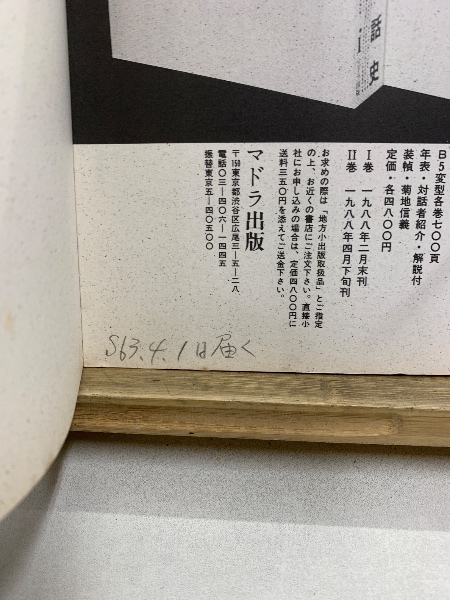 話史
I
B5変型各巻七〇〇頁
年表・対話者紹介・解説付
装幀・菊地信義
定価・各四八〇〇円
I巻 一九八八年二月末刊
II巻 一九八八年四月下旬刊
お求めの際は「地方小出版取扱品」とご指定
の上、お近くの書店にご注文下さい。直接小
社にお申し込みの場合は、定価四八〇〇円に
送料三五〇円を添えてご送金下さい。
マドラ出版
〒150東京都渋谷区広尾三―五―二八
電話〇三―四〇六―一四四五
振替東京五―四〇五〇〇
S63.4.1日届く